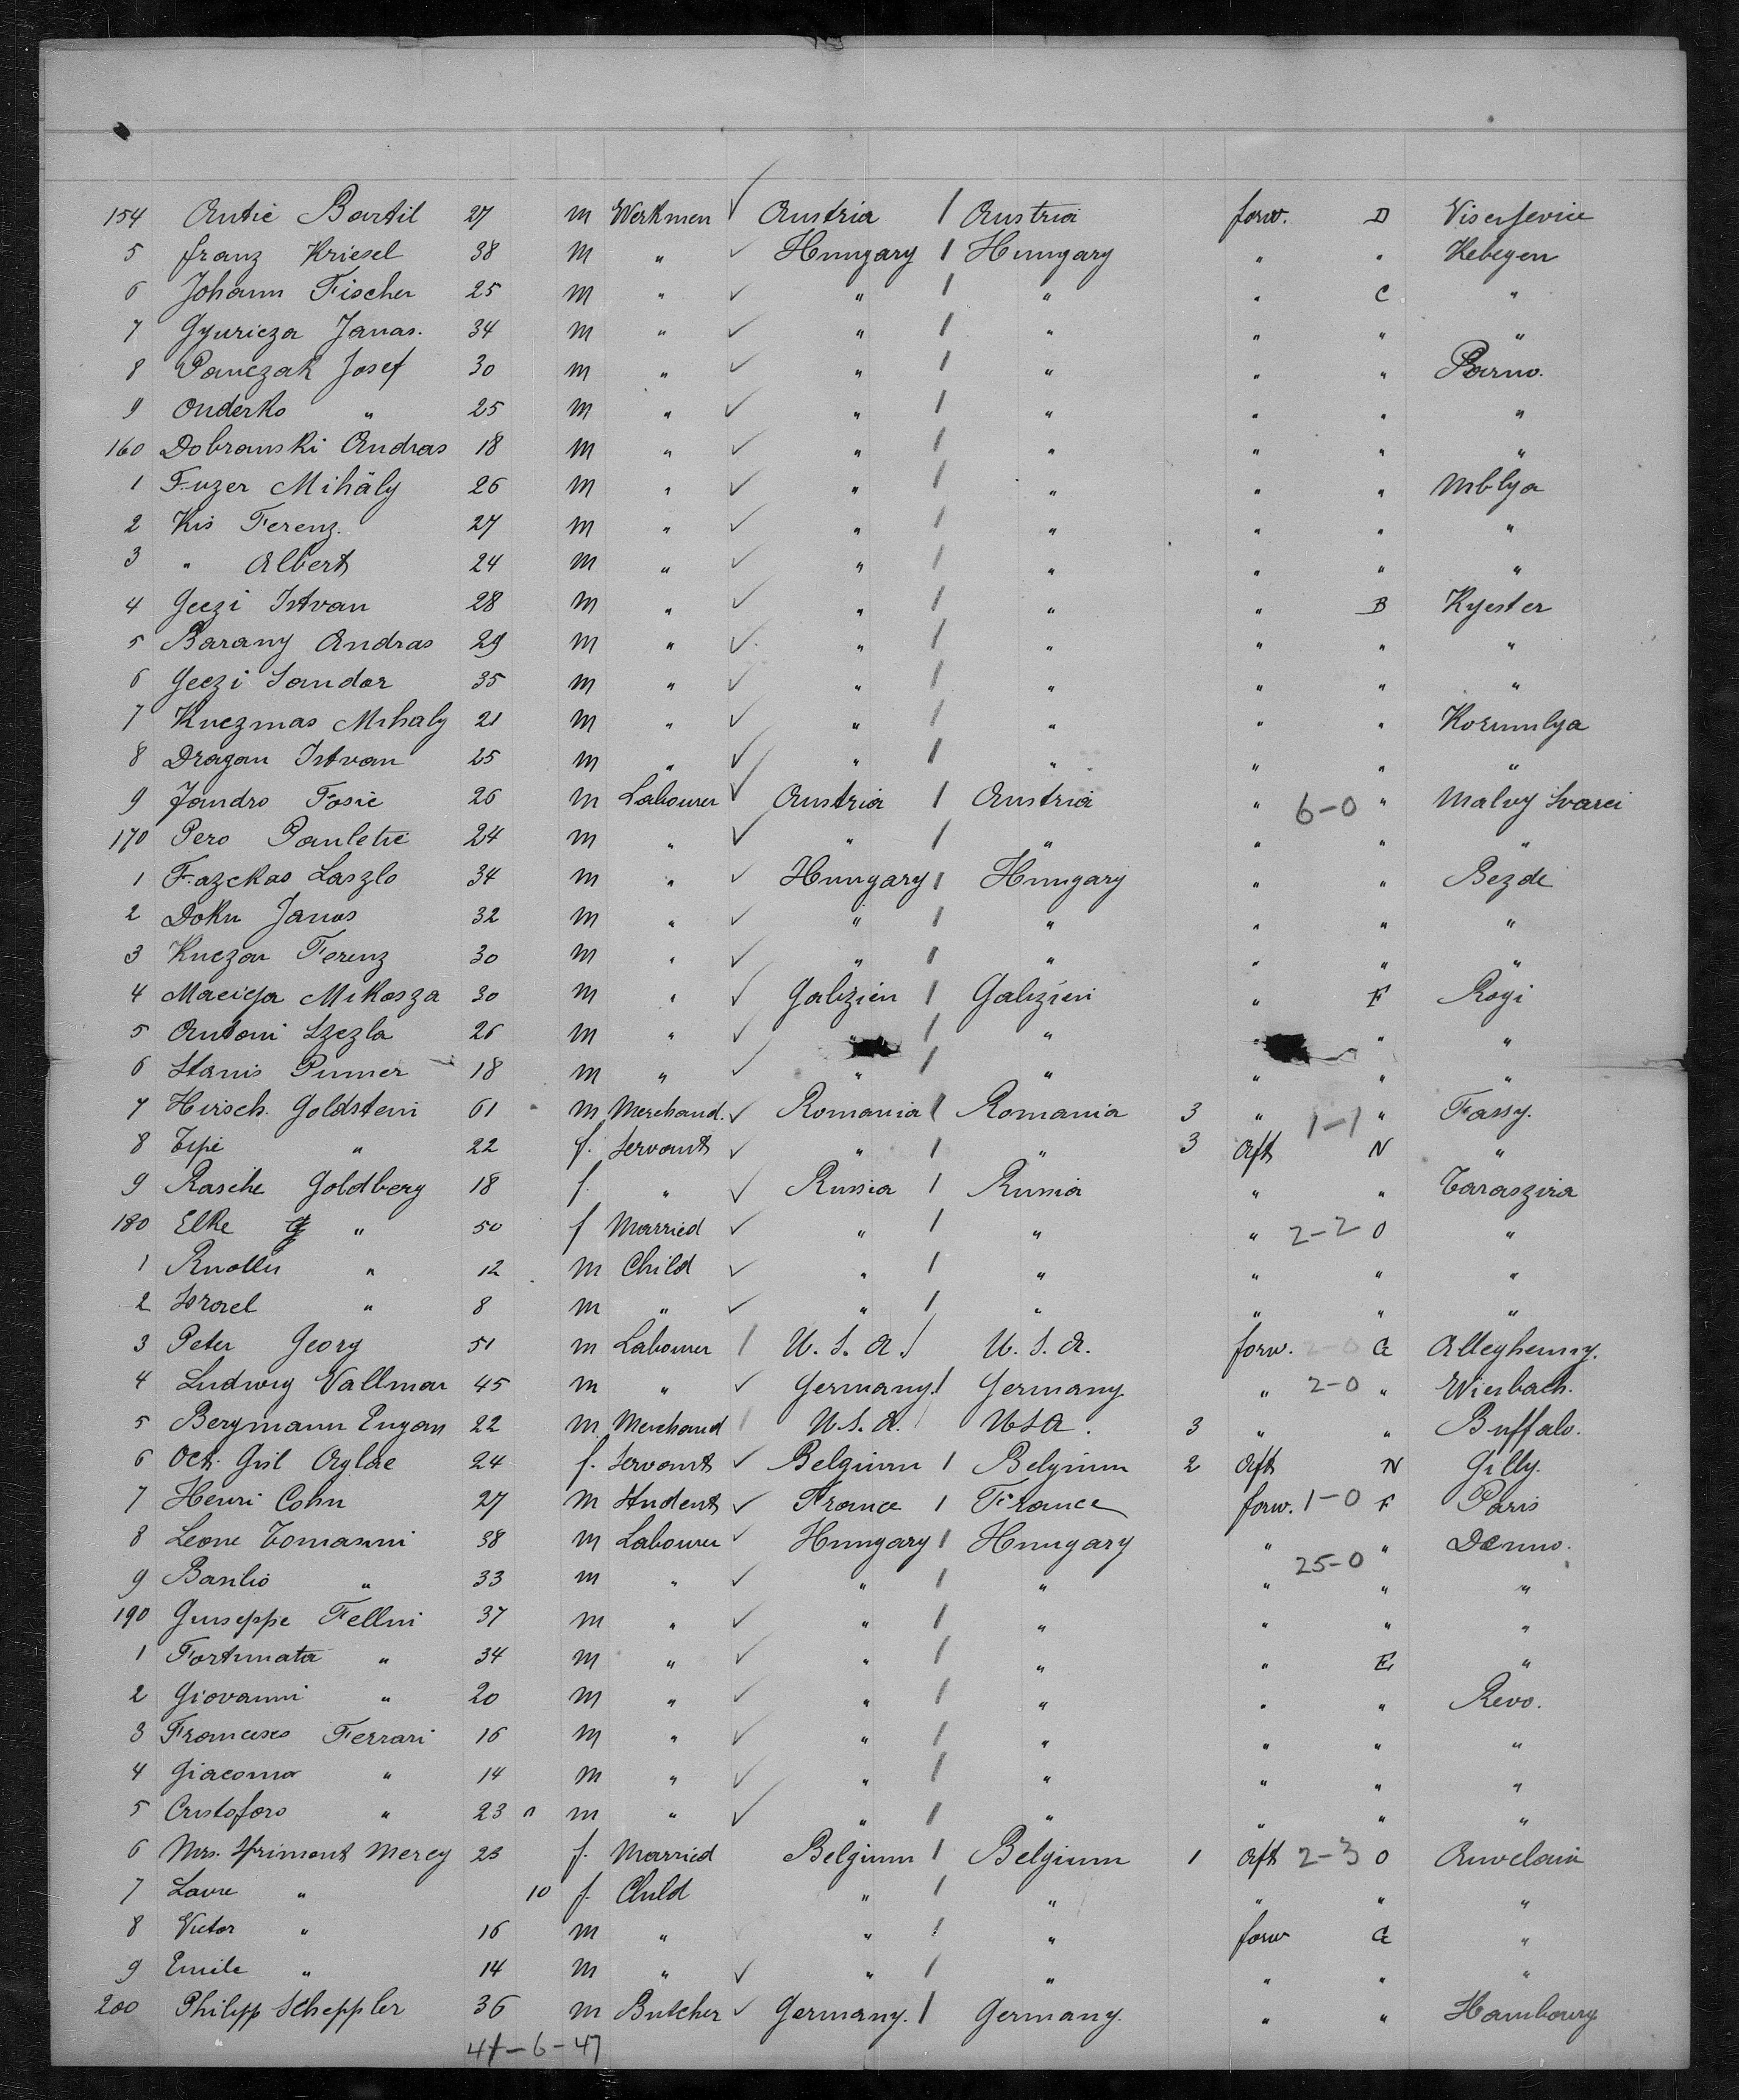 154 Antić Bartil 27 m Werkmen ✓ Austria / Austria forw. D Viserjevice
5 Franz Kriesel 38 m " ✓ Hungary / Hungary " " Hebegen
6 Johann Fischer 25 m " ✓ " / " " C "
7 Gyuricza Janas. 34 m " ✓ " / " " " "
8 Panczak Josef 30 m " ✓ " / " " " Parno.
9 Onderko " 25 m " ✓ " / " " " "
160 Dobranski Andras 18 m " ✓ " / " " " "
1 Fuzer Mihäly 26 m " ✓ " / " " "
2 Kis Ferenz. 27 m " ✓ " / " " " "
3 " Albert 24 m " ✓ " / " " " "
4 Geczi Istvan 28 m " ✓ " / " " B Kyester
5 Barany Andras 29 m " ✓ " / " " " "
6 Geczi Sandor 35 m " ✓ " / " " " "
7 Kuczmas Mihaly 21 m " ✓ " / " " " Korumlya
8 Dragan Istvan 25 m " ✓ " / " " " "
9 Jandro Fosić 26 m Labourer ✓ Austria / Austria " 6-0 " Malvy Svarci
170 Pero Pauletić 24 m " ✓ " / " " " "
1 Fazekas Laszlo 34 m " ✓ Hungary / Hungary " " Bezde
2 Doku Janos 32 m " ✓ " / " " " "
3 Kuczan Ferenz 30 m " ✓ " / " " " "
4 Macieja Mikosza 30 m " ✓ Galizien / Galizien " F Rogi
5 Antoni Szezla 26 m " ✓ " / " " "
6 Stanis Pumer 18 m " ✓ " / " " " "
7 Hirsch. Goldstein 61 m Merchand. ✓ Romania / Romania 3 " 1-1 " Fassy.
8 Tipe " 22 f. Servant ✓ " / " 3 Aft N "
9 Rasche Goldberg 18 f. " ✓ Russia / Russia " " Taraszira
180 Elke " 50 f Married ✓ " / " " 2-2 O "
1 " 12 m Child ✓ " / " " " "
2 Israel " 8 m " ✓ " / " " " "
3 Peter Georg 51 m Labourer / U. S. A. / U. S. A. forw. 2-0 G Alleghenny.
4 Ludwig Vallmar 45 m " ✓ Germany. / Germany. " 2-0 " Wiesbach.
5 Bergmann Eugan 22 m. Merchand / U. S. A. / USA. 3 " " Buffalo.
6 Oct. Gisl Aglae 24 f. Servant ✓ Belgium / Belgium 2 Aft N Gilly.
7 Henri Cohn 27 m Student ✓ France / France forw. 1-0 F Paris
8 Leone Tomasini 38 m Labourer ✓ Hungary / Hungary " 25-0 " Denno.
9 Basilio " 33 m " ✓ " / " " " "
190 Guiseppe Fellini 37 m " ✓ " / " " " "
1 Fortunata " 34 m " ✓ " / " " E "
2 Giovanni " 20 m " ✓ " / " " " Revo.
3 Francesco Ferrari 16 m " ✓ " / " " " "
4 Giacomo " 14 m " ✓ " / " " " "
5 Cristoforo " 23 m " ✓ " / " " " "
6 Mrs. Sprimont Mercy 23 f. Married Belgium / Belgium 1 Aft 2-3 O Auvelain
7 Laure " 10 f. Child " / " " " "
8 Victor " 16 m " " / " forw G "
9 Emile " 14 m " ✓ " / " " " "
200 Philipp Scheppler 36 m Butcher ✓ Germany. / Germany. " " Hambourg
41-6-47